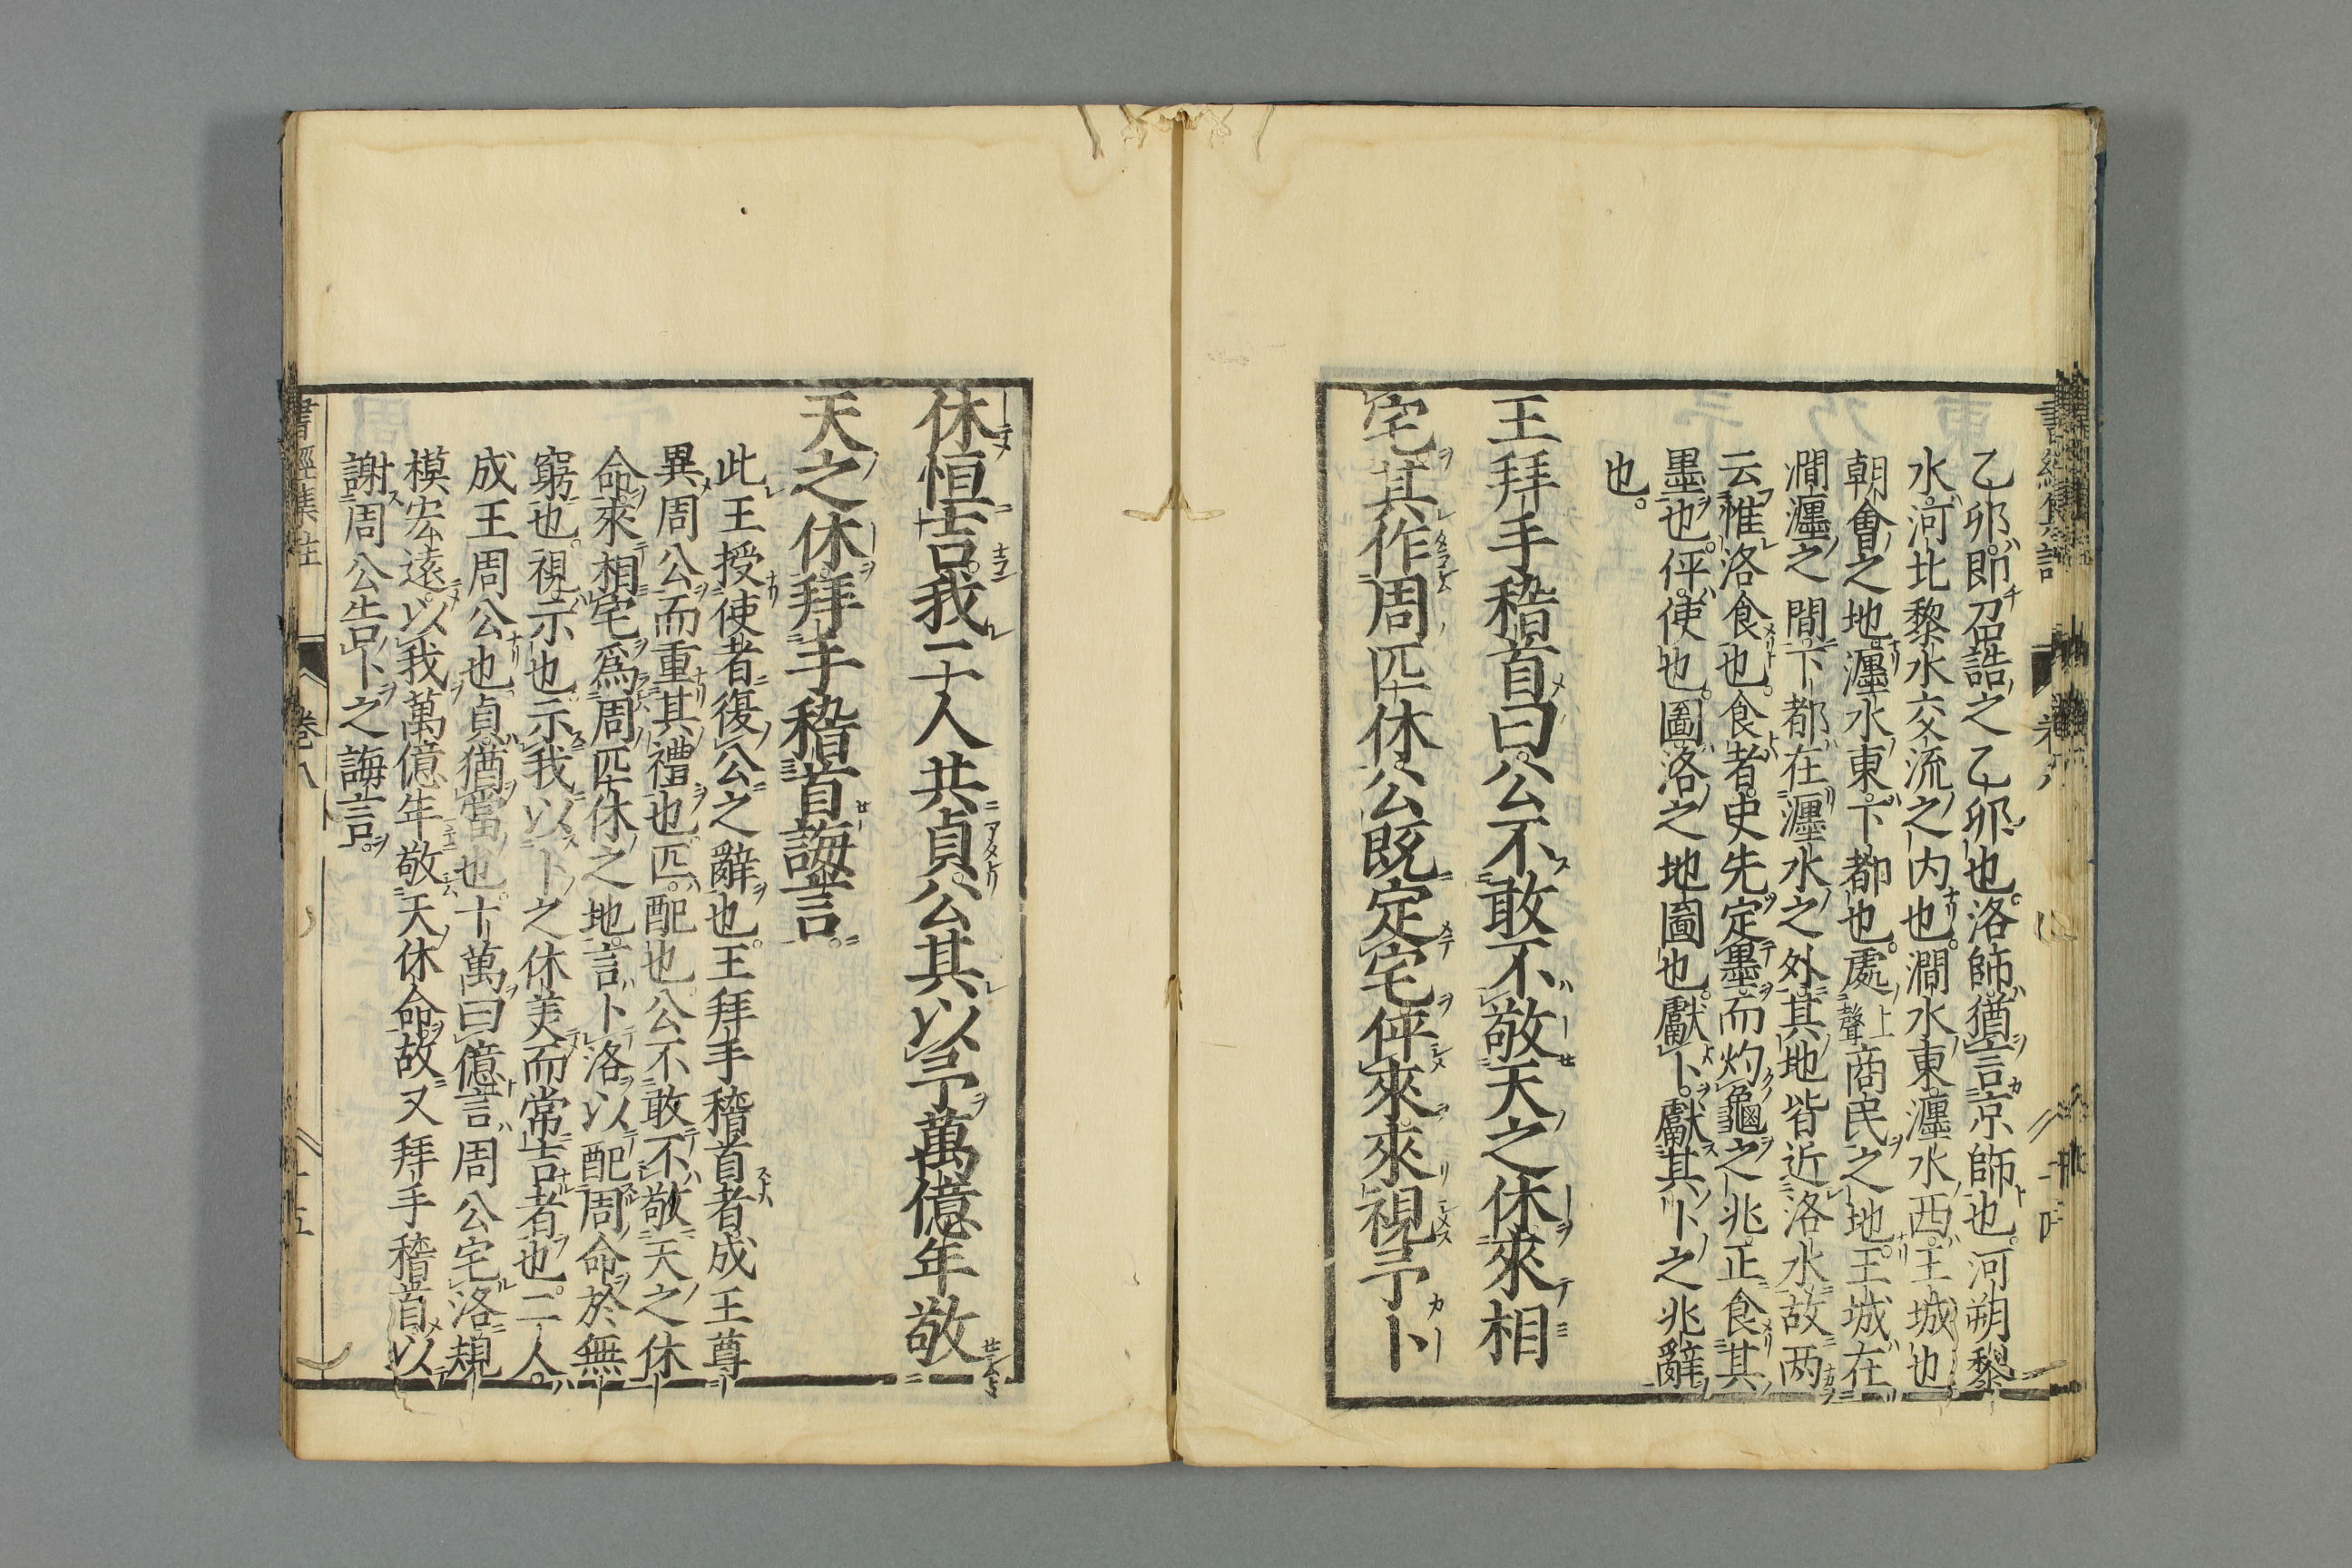 乙卯。即召誥之乙卯也。洛師。猶言京師也。河朔黎
水。河北黎水交流之内也。澗水東瀍水西。王城也。
朝會之地。瀍水東。下都也。處上聲商民之地。王城在
澗瀍之間。下都在瀍水之外。其地皆近洛水。故两
云惟洛食也。食者。史先定墨。而灼龜之兆。正食其
墨也。伻。使也。圖洛之地圖也。獻卜。獻其卜之兆辭
也。
王拜手稽首曰。公不敢不敬天之休。來相
宅。其作周匹休。公既定宅。伻來。來視予卜
休恒吉。我二人共貞。公其以予萬億年敬
天之休。拜手稽首誨言。
此王授使者復公之辭也。王拜手稽首者。成王尊
異周公。而重其禮也。匹。配也。公不敢不敬天之休
命。來相宅。爲周匹休之地。言卜洛以配周命於無
窮也。視。示也。示我以卜之休美而常吉者也。二人。
成王周公也。貞。猶當也。十萬曰億。言周公宅洛。規
模宏遠。以我萬億年敬天休命。故又拜手稽首。以
謝周公告卜之誨言。
書經集註
卷八
十五